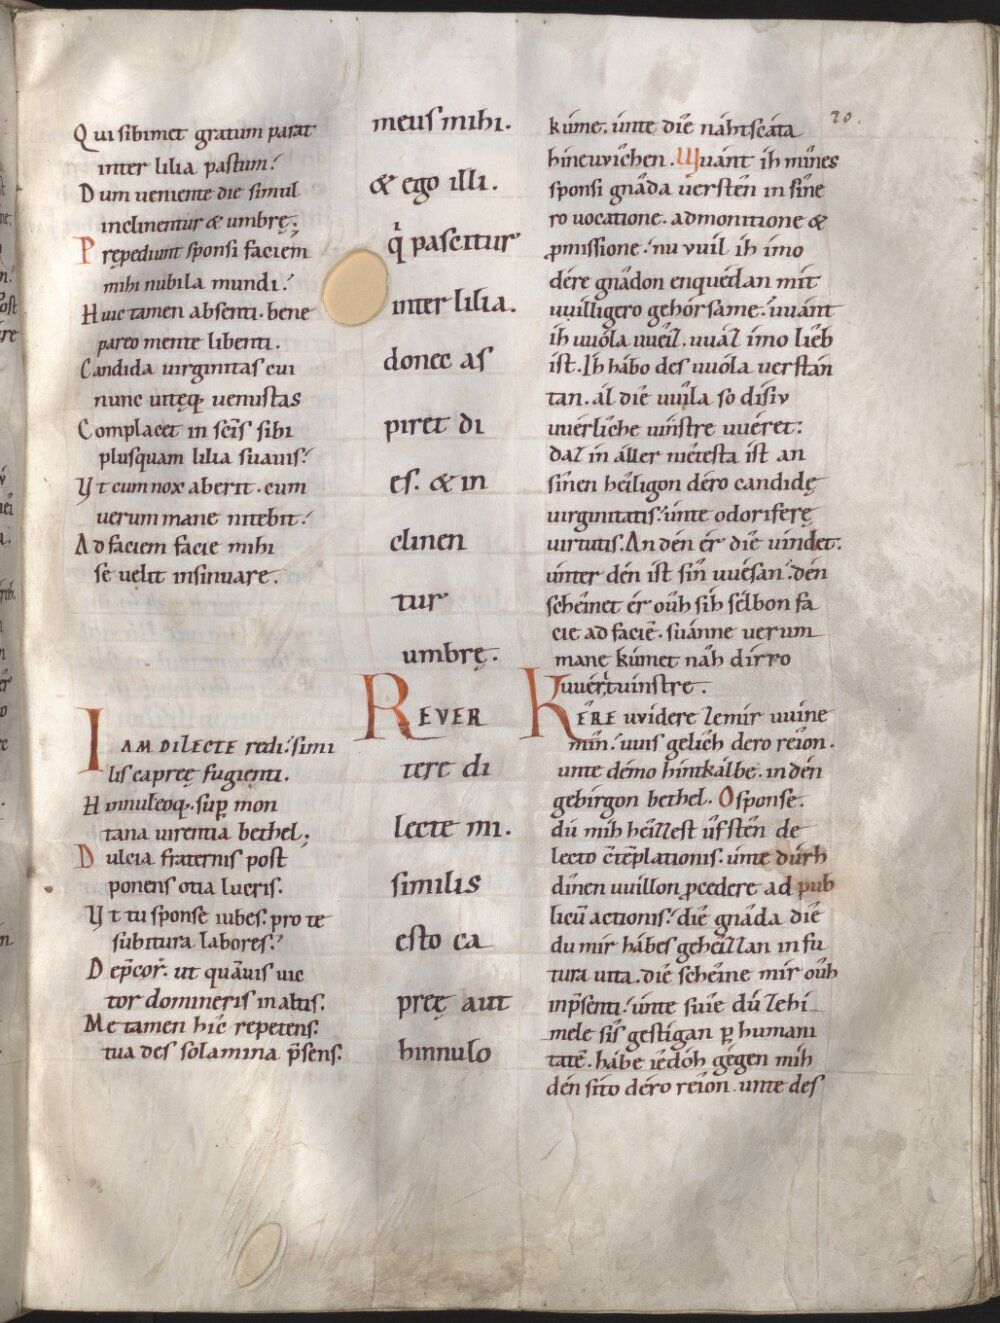 20.
Qui sibimet gratum parat
inter lilia pastum.
Dum veniente die simul
inclinentur & umbrę.
Prępediunt sponsi faciem
mihi nubila mundi.
Huic tamen absenti. bene
pareo mente libenti.
Candida virginitas cui
nunc vitęq; venustas
Complacet in sc̄is sibi
plusquam lilia suavis.
Vt cum nox aberit. cum
verum mane nitebit.
Ad faciem facie mihi
se velit insinuare.
IAM DILECTE redi. simi
lis capreę fugienti.
Hinnuleoq;. sup̱ mon
tana virentia bethel.
Dulcia fraternis post
ponens otia lucris.
Vt tu sponse iubes. pro te
subitura labores.
Dep̄cor. ut quāvis vic
tor domineris in altis.
Me tamen hic repetens.
tua des solamina p̄sens.
meus mihi.
& ego illi.
q̇ pascitur
inter lilia.
donec as
piret di
es. & in
clinen
tur
umbrę.
REVER
tere di
lecte mi.
similis
esto ca
preę aut
hinnulo
kúme. únte dîe náhtscáta
hineuvîchen. Wuánt íh mînes
sponsi gnâda verstên in sîne
ro vocatione. admonitione &
p̱missione. nu vuil íh ímo
dére gnâdon enquédan mít
vuílligero gehórsame. úvánt
íh vuóla vueîl. vuál ímo lîeb
íst. Íh hábo des vuóla verstán
tan. ál dîe vuîla so dísiv
vuérlîche vînstre vuéret.
dáz ín áller nîetesta íst an
sînen heîligon déro candidę
virginitatis. únte odoriferę
virtutis. An dén ér dîe víndet.
únter dén íst sîn vuésan. dén
scheînet ér oûh síh sélbon fa
cie ad faciē. suánne verum
mane kúmet nâh dírro
vuérltvinstre.
KÊRE vvidere ze mir vuíne
mîn. vuis gelîch dero reîon.
unte démo híntkálbe. in dén
gebírgon bethel. O sponse.
dú mih heîzzest ûfstên de
lecto c̄tēplationis. únte dúrh
dînen vuíllon p̱cedere ad pub
licū actionis. dîe gnâda dîe
du mir hábes geheîzzan in fu
tura vita. dîe scheîne mír oûh
inp̄senti. únte suîe dû ze hi
mele sîs gestígan p̱ humani
tatē. hábe iedóh gégen mih
dén síto déro reîon. unte des